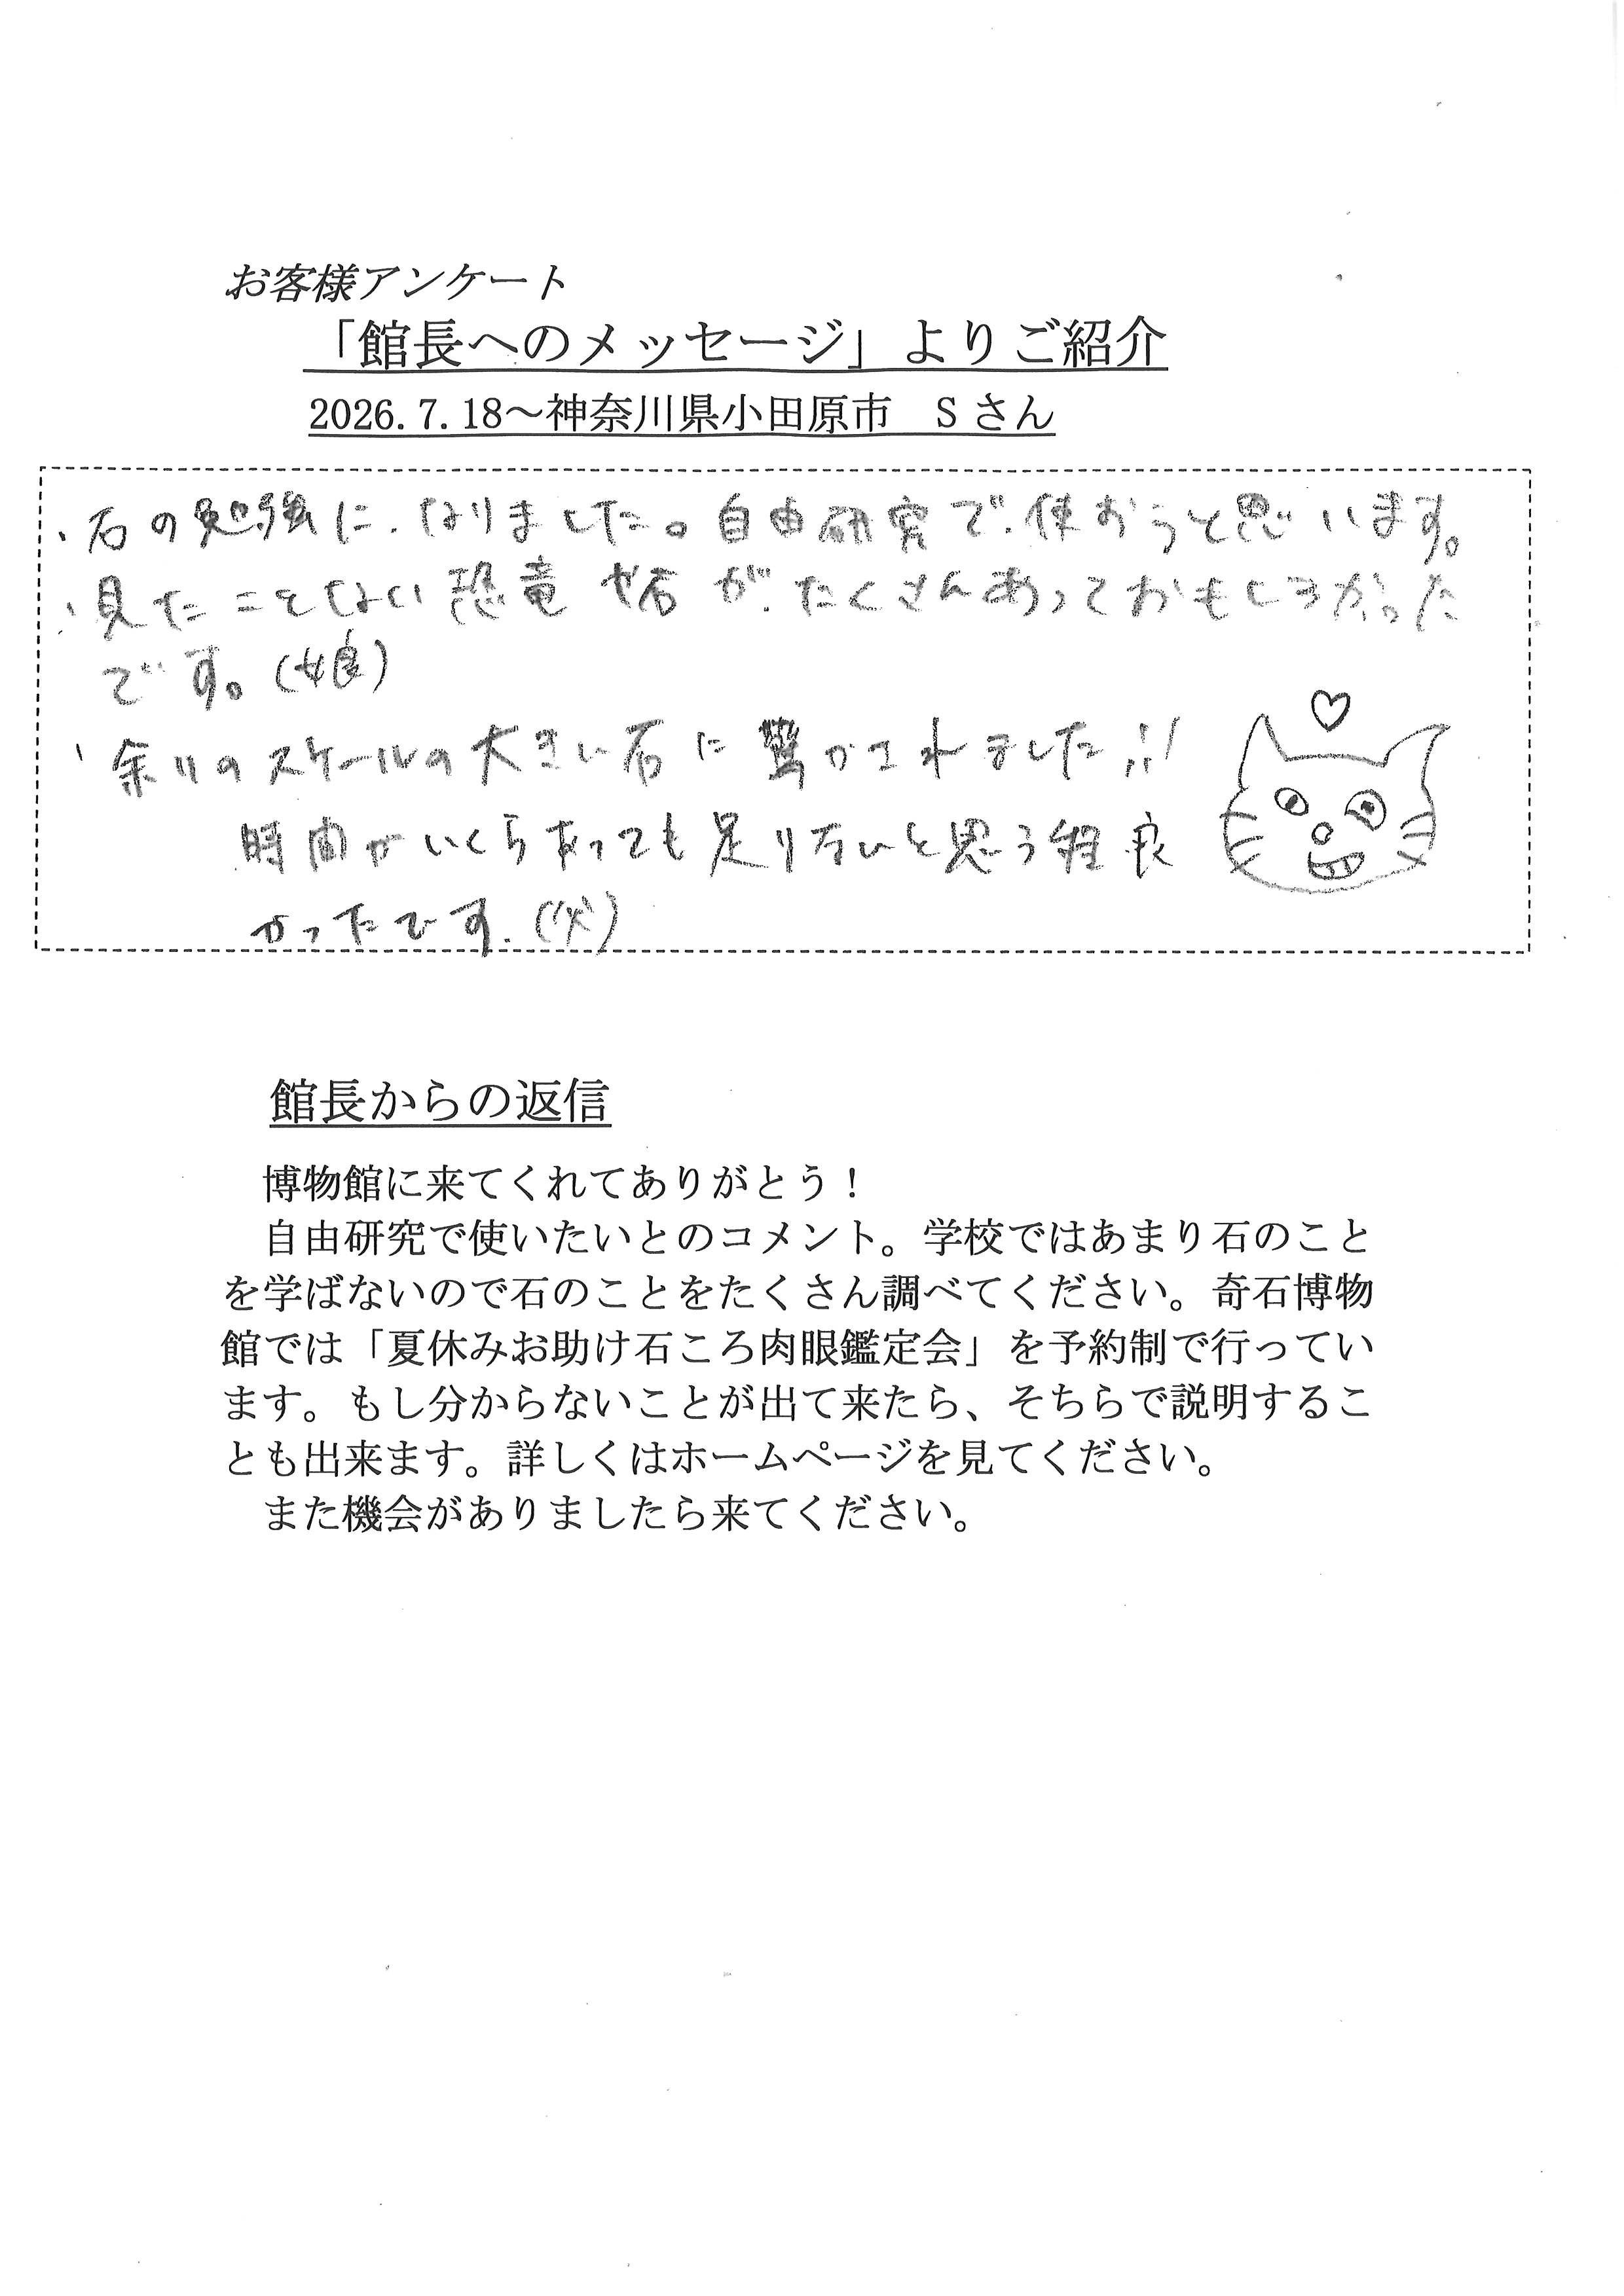 お客様アンケート
「館長へのメッセージ」よりご紹介
2026.7.18～神奈川県小田原市　Sさん
・石の勉強に、なりました。自由研究で、使おうと思います。
・見たことない恐竜や石が、たくさんあっておもしろかった
です。(娘)
・余りのスケールの大きい石に驚かされました!!
時間がいくらあっても足りないと思う程良
かったです。(父)
館長からの返信
博物館に来てくれてありがとう！
自由研究で使いたいとのコメント。学校ではあまり石のこと
を学ばないので石のことをたくさん調べてください。奇石博物
館では「夏休みお助け石ころ肉眼鑑定会」を予約制で行ってい
ます。もし分からないことが出て来たら、そちらで説明するこ
とも出来ます。詳しくはホームページを見てください。
また機会がありましたら来てください。